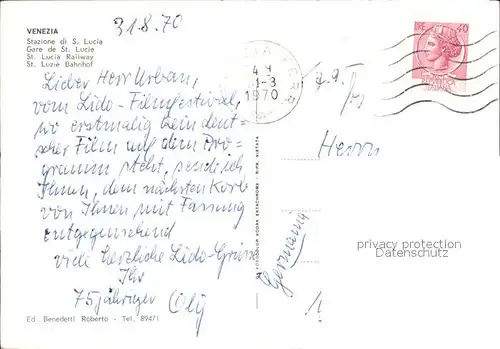 VENEZIA
Stazione di S. Lucia
Gare de St. Lucie
St. Lucia Railway
St. Luzie Bahnhof
31.8.70
Lieber Herr Urban,
vom Lido-Filmfestival,
wo erstmalig kein deut=
scher Film auf dem Pro=
gramm steht, sende ich
Ihnen, dem nächsten Korb
von Ihnen mit Fassung
entgegensehend
viele herzliche Lido-Grüsse
Ihr
75jähriger
Ed. Benedetti Roberto - Tel. 89471
1-3
1970
40
Herrn
Germania
privacy protection
Datenschutz